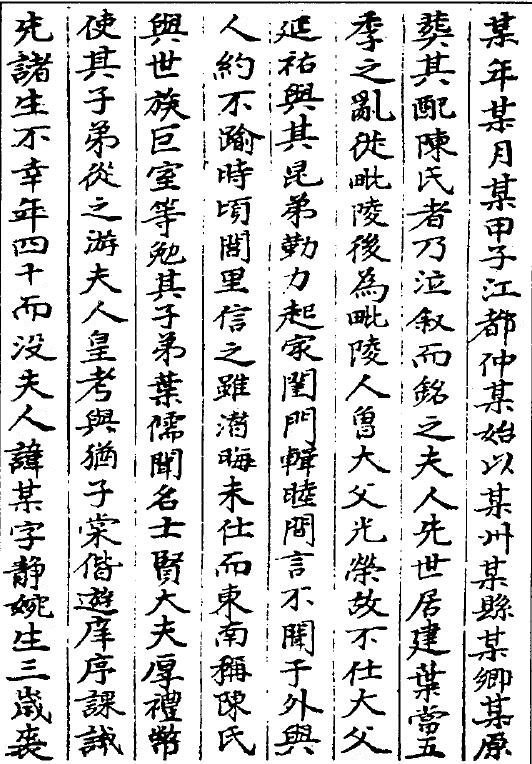 某年某月某甲子江都仲某始以某州某縣某鄉某原
葬其配陳氏者乃泣叙而銘之夫人先世居建葉當五
季之亂徙毗陵後為毗陵人曾大父光榮故不仕大父
延祐與其昆弟勤力起家閨門輯睦間言不聞于外與
人約不踰時頃閭里信之雖潛晦未仕而東南稱陳氏
與世族巨室等勉其子弟業儒聞名士賢大夫厚禮幣
使其子弟從之游夫人皇考與猶子棠偕遊庠序課試
先諸生不幸年四十而没夫人諱某字靜婉生三歲喪